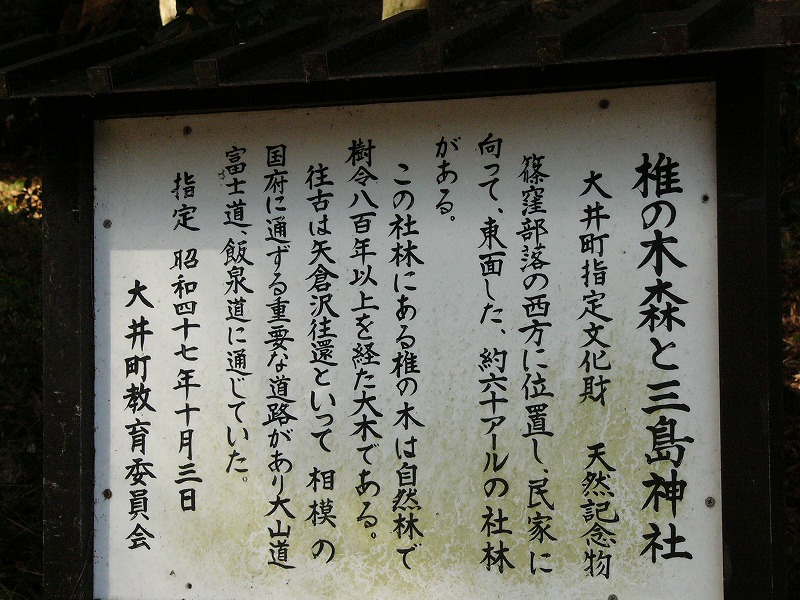 椎の木森と三島神社
大井町指定文化財 天然記念物
篠窪部落の西方に位置し、民家に
向って、東面した、約六十アールの社林
がある。
この社林にある椎の木は自然林で
樹令八百年以上を経た大木である。
往古は矢倉沢往還といって相模の
国府に通ずる重要な道路があり大山道
富士道、飯泉道に通じていた。
指定 昭和四十七年十月三日
大井町教育委員会